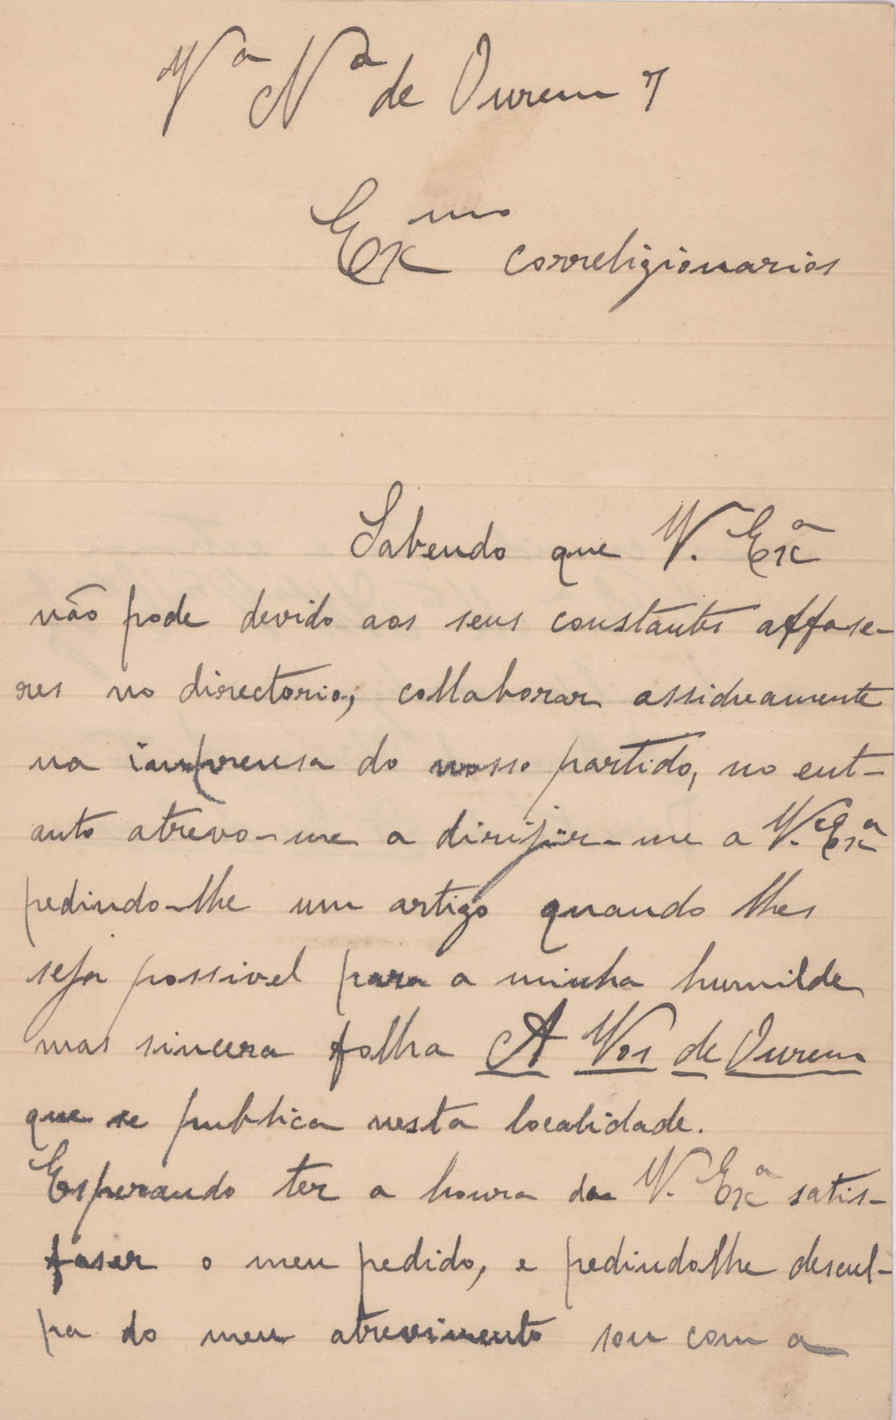 Vª Nª de Ourem 7
Exmo correligionarios
Sabendo que V. Exª
não pode devido aos seus constantes affase-
res no directorio, collaborar assiduamente
na imprensa do nosso partido, no ent-
anto atrevo-me a dirijir-me a V. Exª
pedindo-lhe um artigo quando lhes
seja possivel para a minha humilde
mas sincera folha A Vos de Ourem
que se publica nesta localidade.
Esperando ter a honra de V. Exª satis-
faser o meu pedido, e pedindolhe descul-
pa do meu atrevimento sou com a